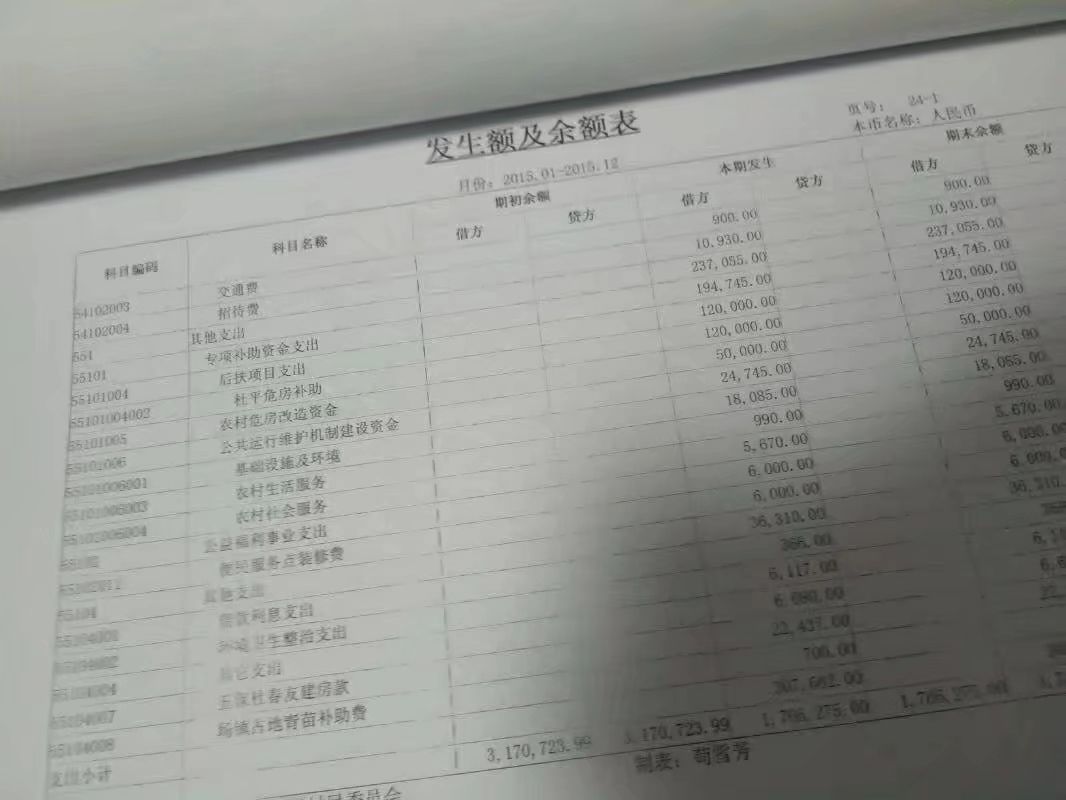 发生额及余额表
页号: 24-1
月份: 2015.01-2015.12 本币名称: 人民币
科目编码 科目名称 期初余额 本期发生 期末余额
借方 贷方 借方 贷方 借方 贷方
54102003 交通费 900.00 900.00
54102004 招待费 10,930.00 10,930.00
551 其他支出 237,055.00 237,055.00
55101 专项补助资金支出 194,745.00 194,745.00
55101004 后扶项目支出 120,000.00 120,000.00
55101004002 杜平危房补助 120,000.00 120,000.00
55101005 农村危房改造资金 50,000.00 50,000.00
55101006 公共运行维护机制建设资金 24,745.00 24,745.00
55101006001 基础设施及环境 18,085.00 18,085.00
55101006003 农村生活服务 990.00 990.00
55101006004 农村社会服务 5,670.00 5,670.00
55102 公益福利事业支出 6,000.00 6,000.00
便民服务点装修费 6,000.00 6,000.00
55104 其他支出 36,310.00 36,310
55104001 借款利息支出 366.00
55104002 环境卫生整治支出 6,117.00
55104004 其它支出 6,690.00
55104007 五保杜春友建房款 22,437.00
55104008 场镇占地青苗补助费 700.00
支出小计 307,662.00
3,170,723.99 3,170,723.99 1,766,275.00 1,766,275.00
村民委员会 制表: